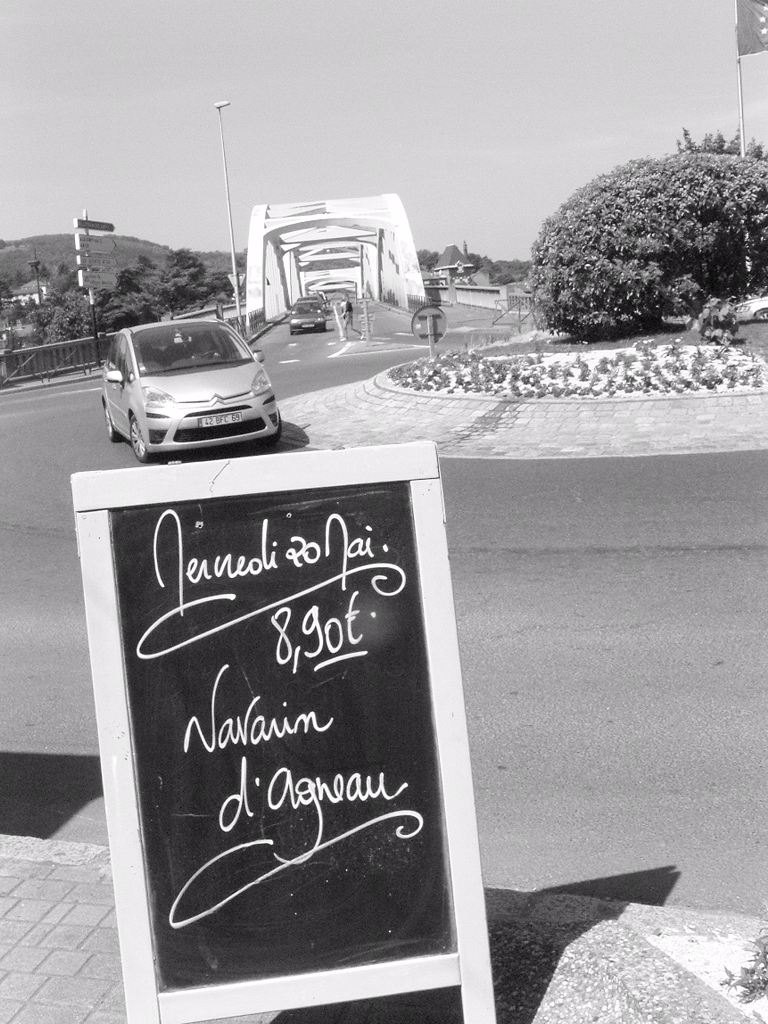 42 BFC 69
Mercredi 20 Mai.
8,90€.
Navarin
d'Agneau